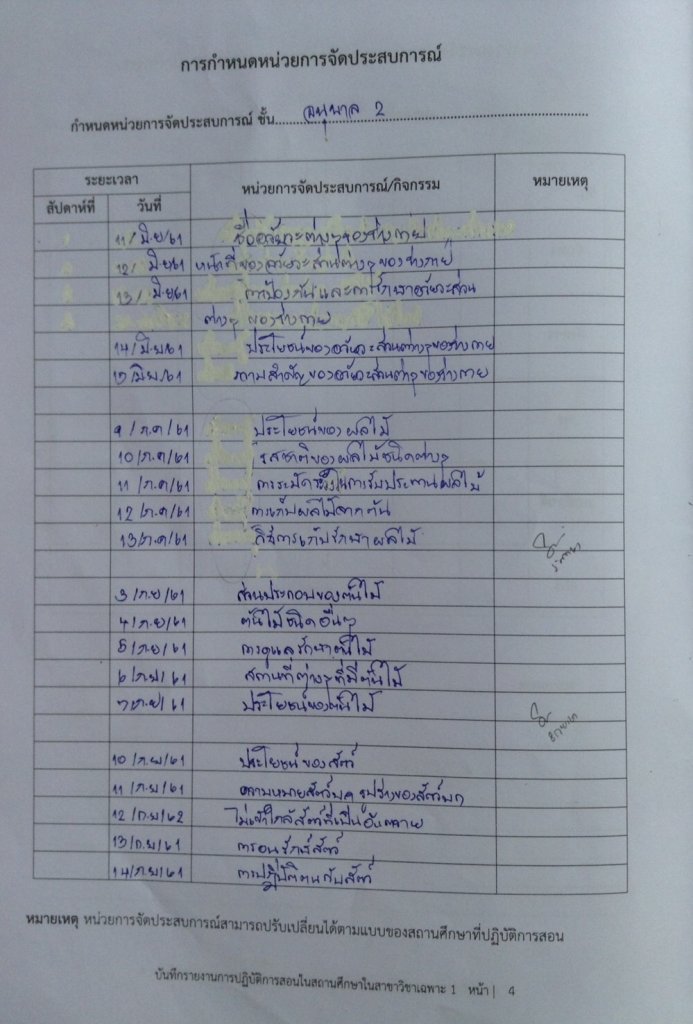 การกำหนดหน่วยการจัดประสบการณ์
กำหนดหน่วยการจัดประสบการณ์ ชั้น อนุบาล 2
ระยะเวลา หน่วยการจัดประสบการณ์/กิจกรรม หมายเหตุ
สัปดาห์ที่ วันที่
11/มิ.ย/61 ชื่ออวัยวะต่างๆของร่างกาย
12/มิย61 หน้าที่ของอวัยวะส่วนต่างๆของร่างกาย
13/มิย61 การป้องกันและการรักษาอวัยวะส่วน
ต่างๆ ของร่างกาย
14/มิ.ย/61 ประโยชน์ของอวัยวะส่วนต่างๆของร่างกาย
15/มิย/61 ความสำคัญของอวัยวะส่วนต่างๆของร่างกาย
9/ก.ค/61 ประโยชน์ของผลไม้
10/ก.ค/61 รสชาติของผลไม้ชนิดต่างๆ
11/ก.ค/61 การระมัดระวังในการรับประทานผลไม้
12/ก.ค/61 การเก็บผลไม้จากต้น
13/ก.ค/61 วิธีการเก็บรักษาผลไม้
3/ก.ย/61 ส่วนประกอบของต้นไม้
4/ก.ย/61 ต้นไม้ชนิดอื่นๆ
5/ก.ย/61 การดูแลรักษาต้นไม้
6/ก.ย/61 สถานที่ต่างๆที่มีต้นไม้
7/ก.ย/61 ประโยชน์ของต้นไม้
10/ก.ย/61 ประโยชน์ของสัตว์
11/ก.ย/61 ความหมายสัตว์บก รูปร่างของสัตว์บก
12/ก.ย/62 ไม่เข้าใกล้สัตว์ที่เป็นอันตราย
13/ก.ย/61 การอนุรักษ์สัตว์
14/ก.ย/61 การปฏิบัติตนกับสัตว์
หมายเหตุ หน่วยการจัดประสบการณ์สามารถปรับเปลี่ยนได้ตามแบบของสถานศึกษาที่ปฏิบัติการสอน
บันทึกรายงานการปฏิบัติการสอนในสถานศึกษาในสาขาวิชาเฉพาะ 1 หน้า | 4